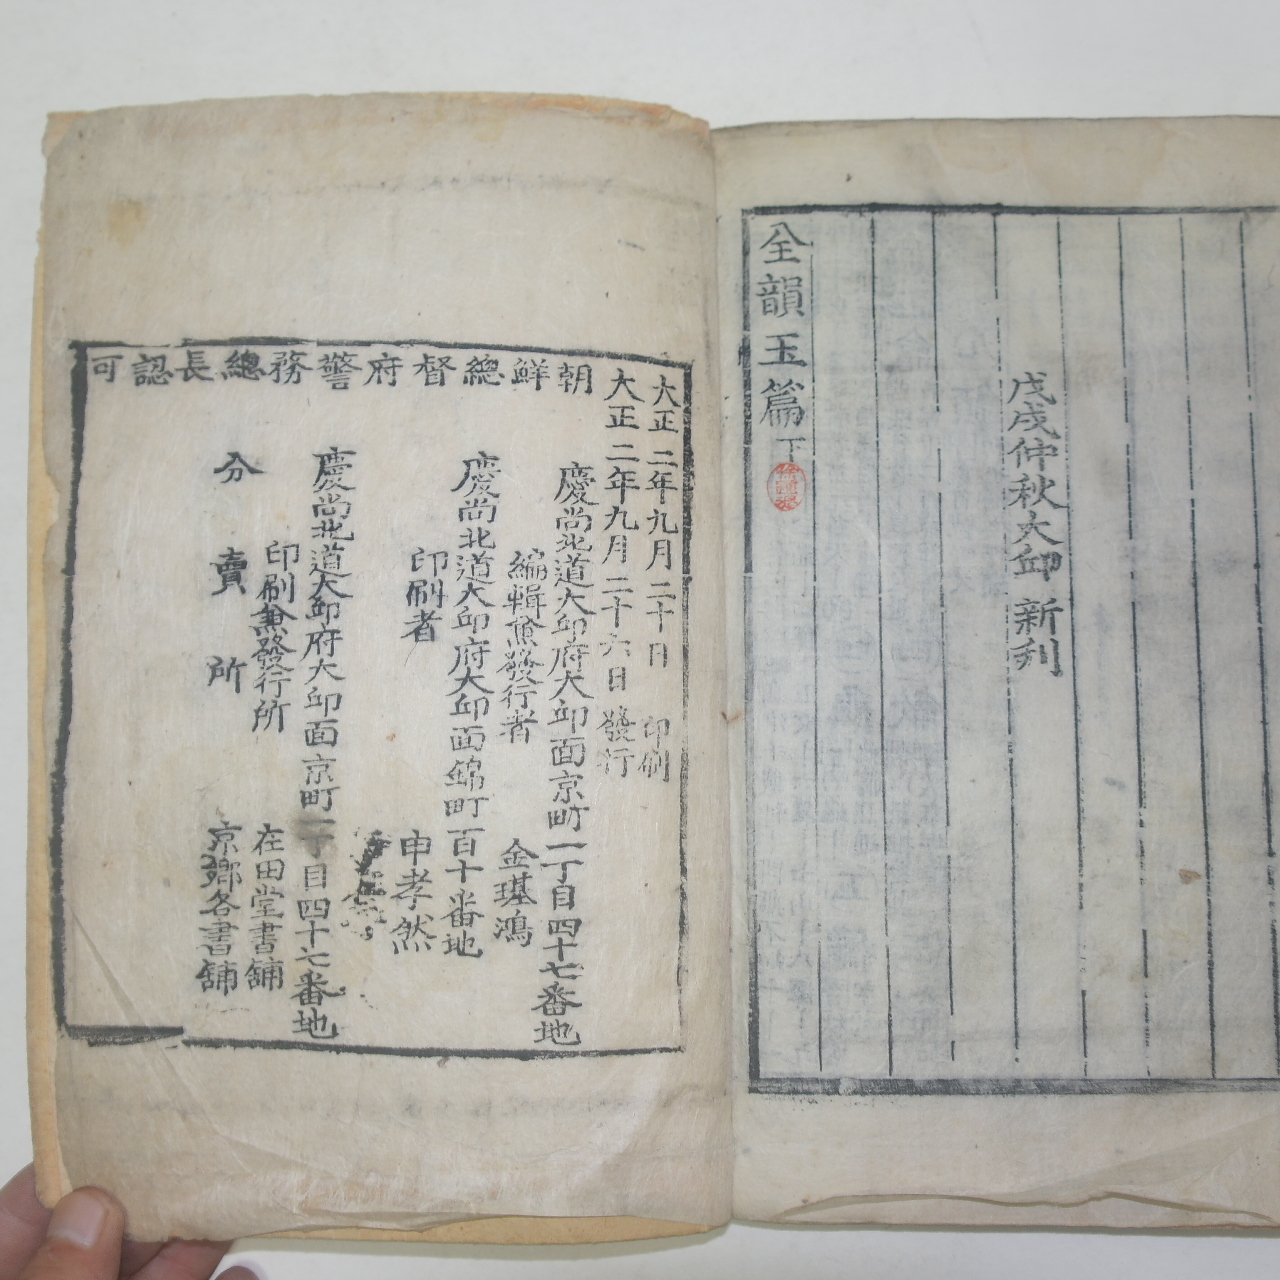 戊戌仲秋大邱新刋
全韻玉篇下
朝鮮總督府警務總長認可
大正二年九月二十日 印刷
大正二年九月二十六日 發行
慶尙北道大邱府大邱面京町一丁目四十七番地
編輯兼發行者 金璂鴻
慶尙北道大邱府大邱面錦町一百十番地
印刷者 申孝然
慶尙北道大邱府大邱面京町一丁目四十七番地
印刷兼發行所 在田堂書舖
分賣所 京鄕各書舖